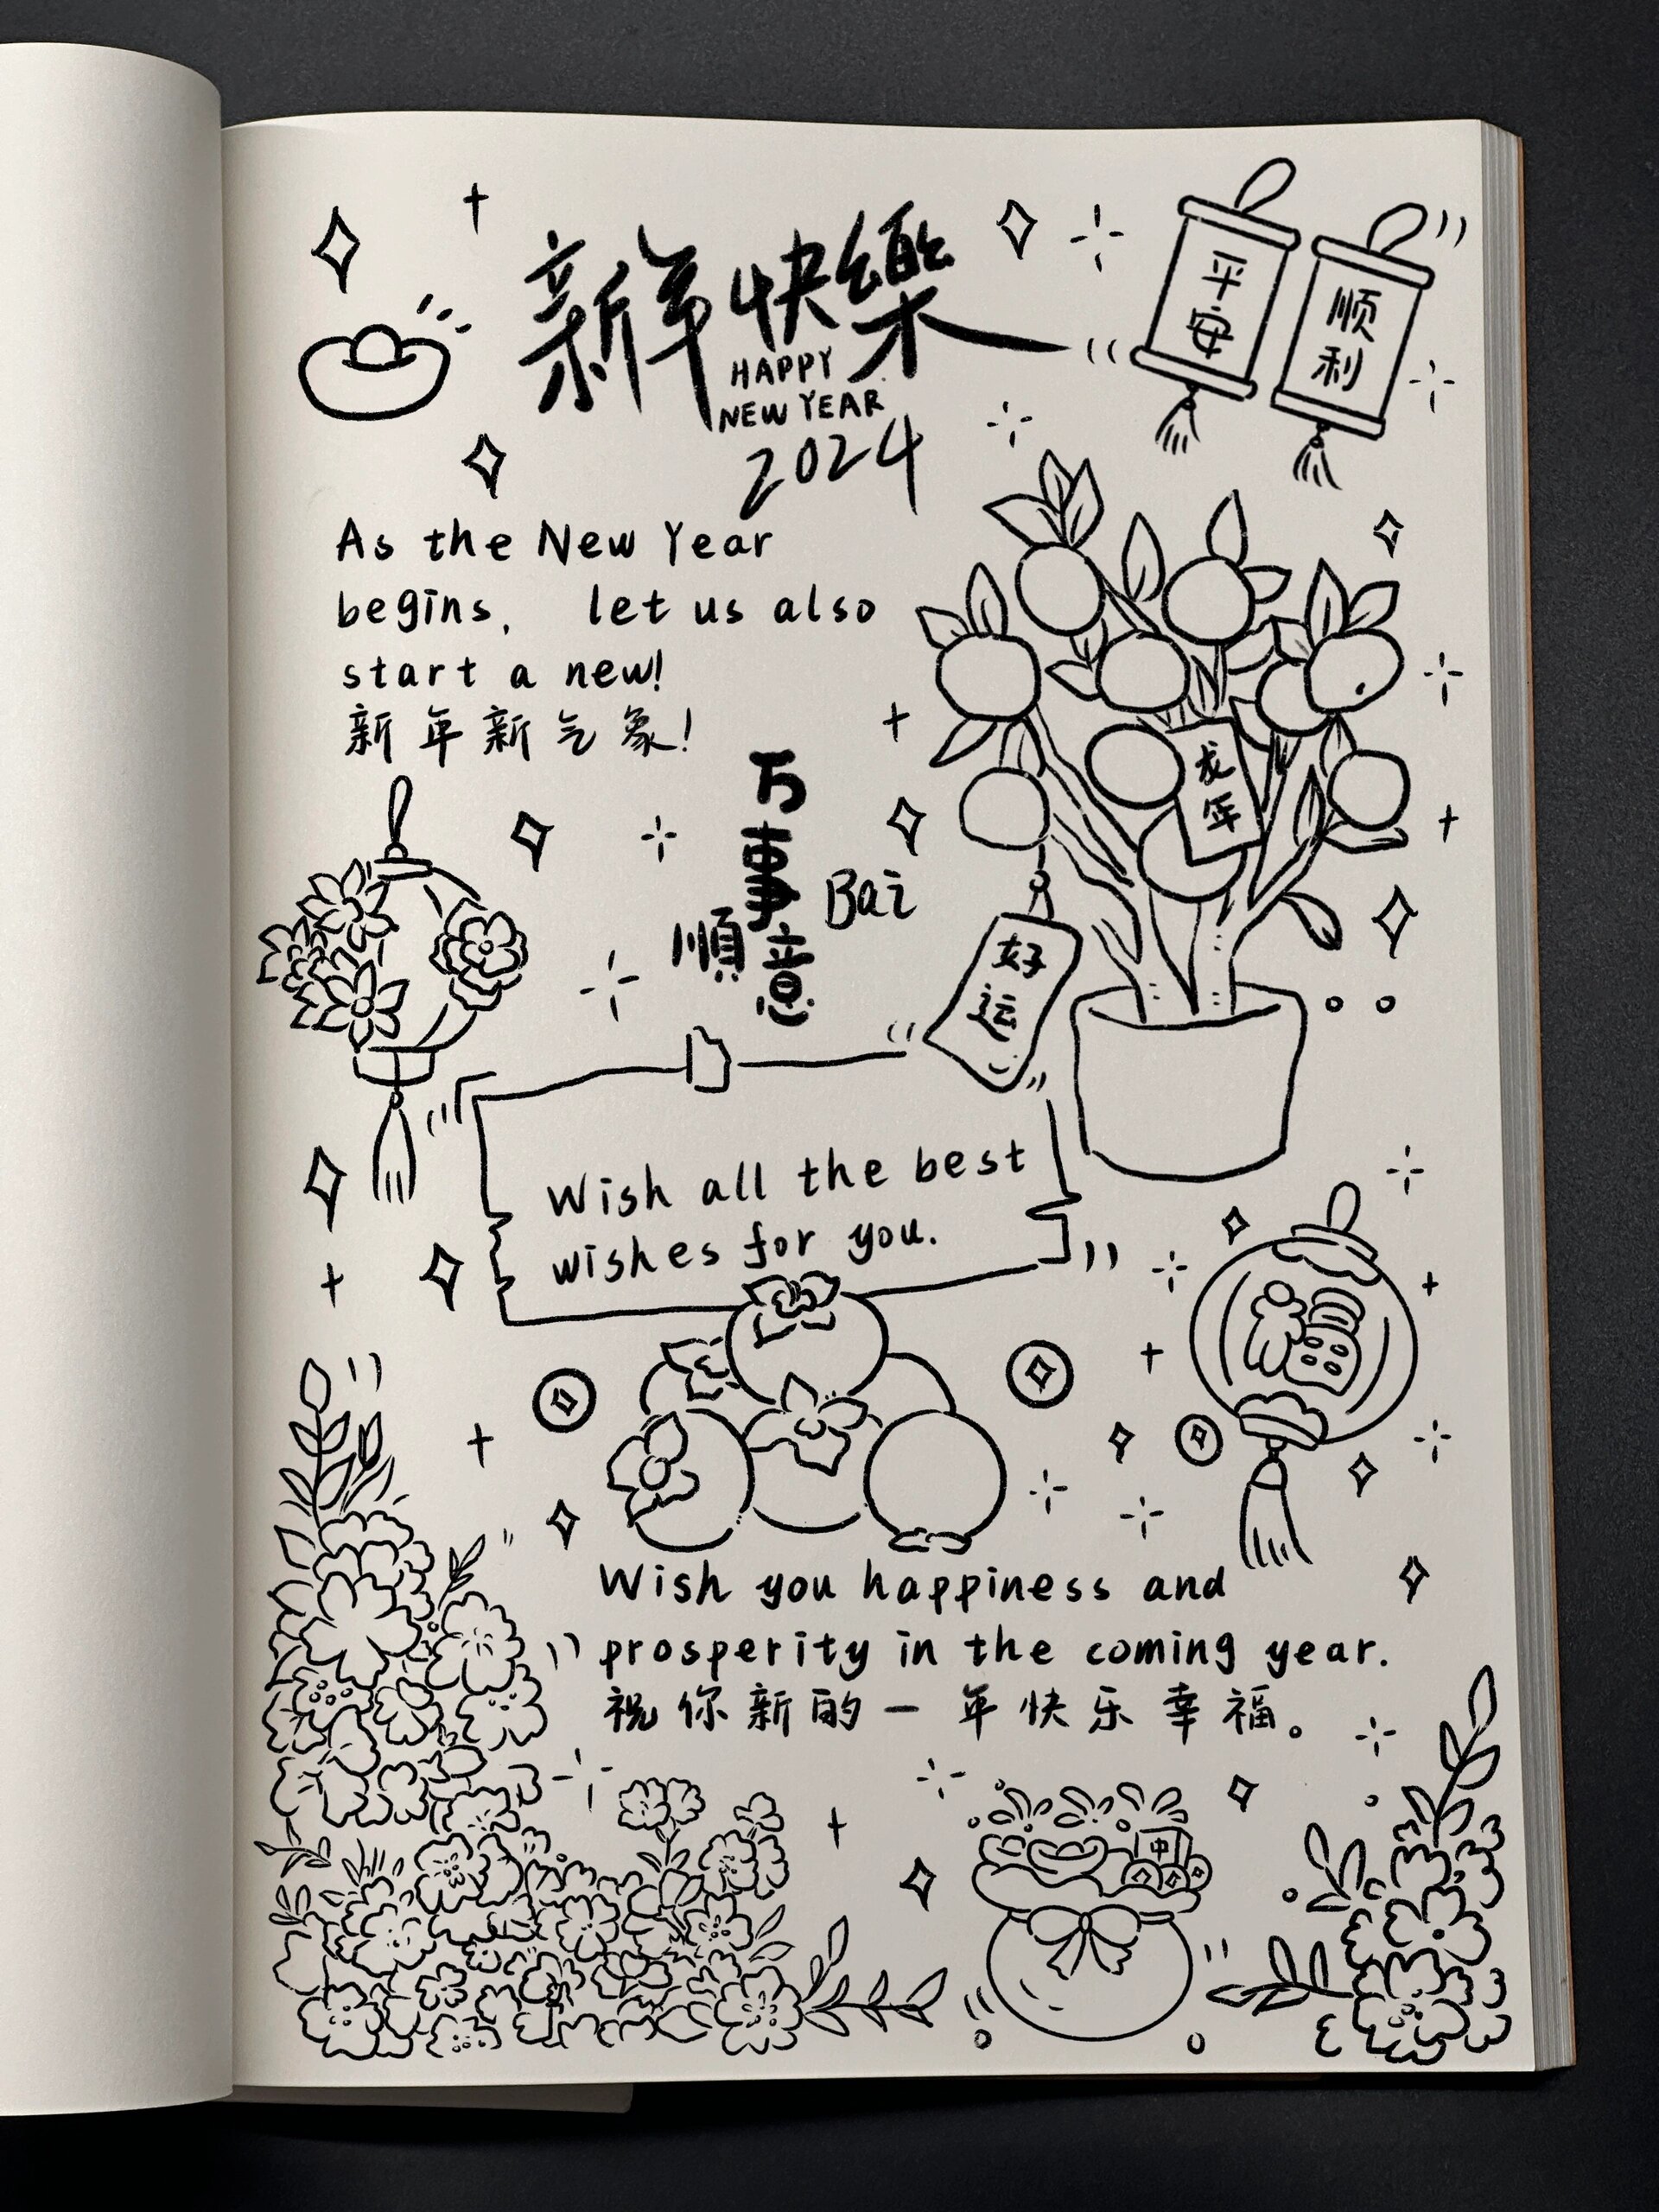 新年快樂
HAPPY
NEW YEAR
2024
平安
顺利
As the New Year
begins, let us also
start a new!
新年新气象!
龙年
万事
順意
Bai
好运
Wish all the best
wishes for you.
福
Wish you happiness and
prosperity in the coming year.
祝你新的一年快乐幸福。
中